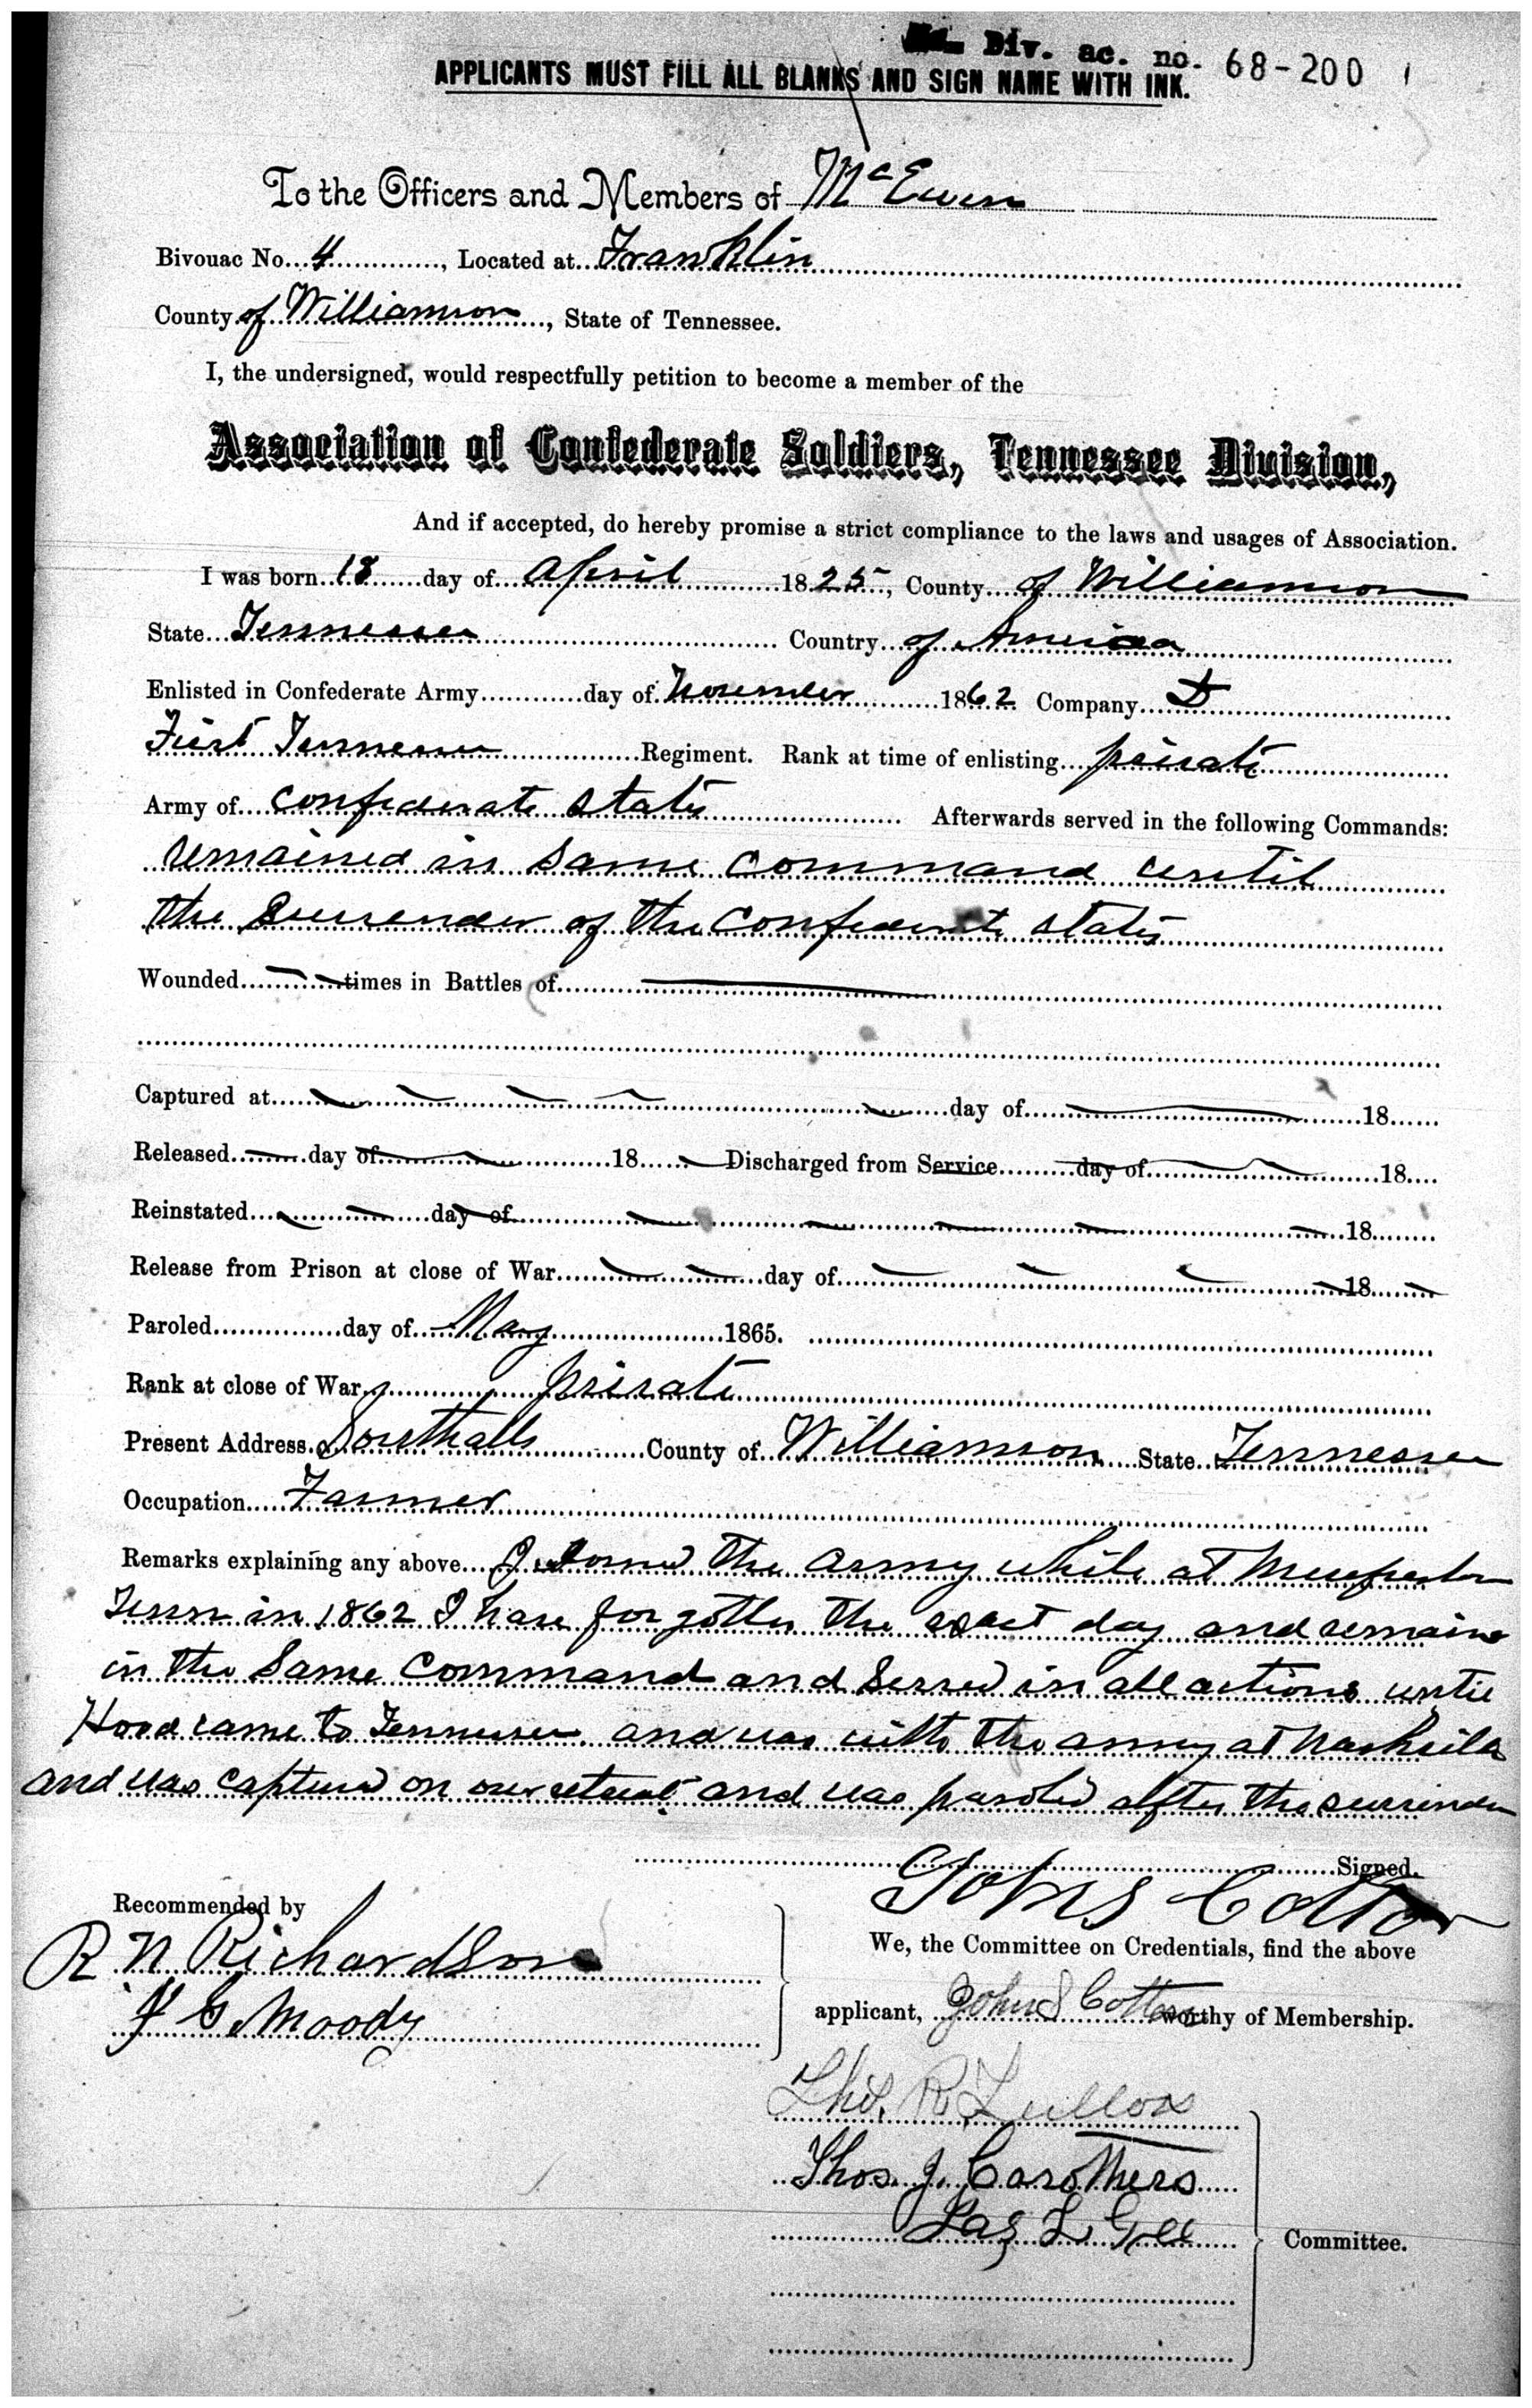 Div. ac. no. 68-200
APPLICANTS MUST FILL ALL BLANKS AND SIGN NAME WITH INK.
To the Officers and Members of McEwen
Bivouac No. 4, Located at Franklin
County of Williamson, State of Tennessee.
I, the undersigned, would respectfully petition to become a member of the
Association of Confederate Soldiers, Tennessee Division,
And if accepted, do hereby promise a strict compliance to the laws and usages of Association.
I was born 18 day of April 1825, County of Williamson
State Tennessee Country of America
Enlisted in Confederate Army day of November 1862 Company D
First Tennessee Regiment. Rank at time of enlisting private
Army of Confederate States Afterwards served in the following Commands:
remained in same command until
the surrender of the Confederate States
Wounded times in Battles of
Captured at day of 18
Released day of 18 Discharged from Service day of 18
Reinstated day of 18
Release from Prison at close of War day of 18
Paroled day of May 1865.
Rank at close of War private
Present Address Southalls County of Williamson State Tennessee
Occupation Farmer
Remarks explaining any above I the army while at
Tenn in 1862 I have forgotten the exact day and remained
in the same command and served in all actions until
Hood came to Tennessee and was with the army at Nashville
and was captured on our retreat and was paroled after the surrender
Signed.
John S Cotton
Recommended by
R N Richardson
G. Moody
We, the Committee on Credentials, find the above
applicant, John S Cotton worthy of Membership.
R.
Thos. J. Carothers
Jas L Gee
Committee.